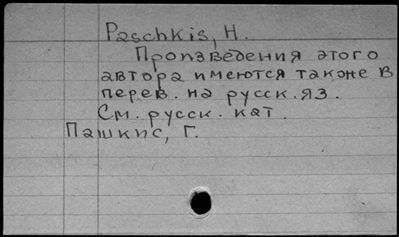 Paschkis, H.
Произведения этого
автора имеются также в
перев. на русск. яз.
См. русск. кат.
Пашкис, Г.